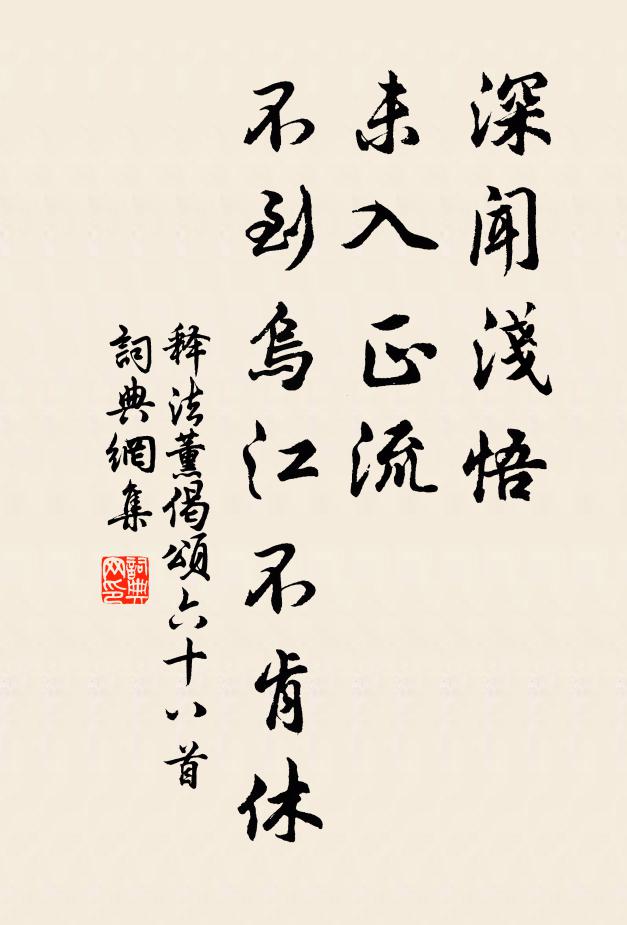 深聞淺悟
未入正流
不到烏江不肯休
释法薰偈頌六十八首
詞典網集
詞典
网印